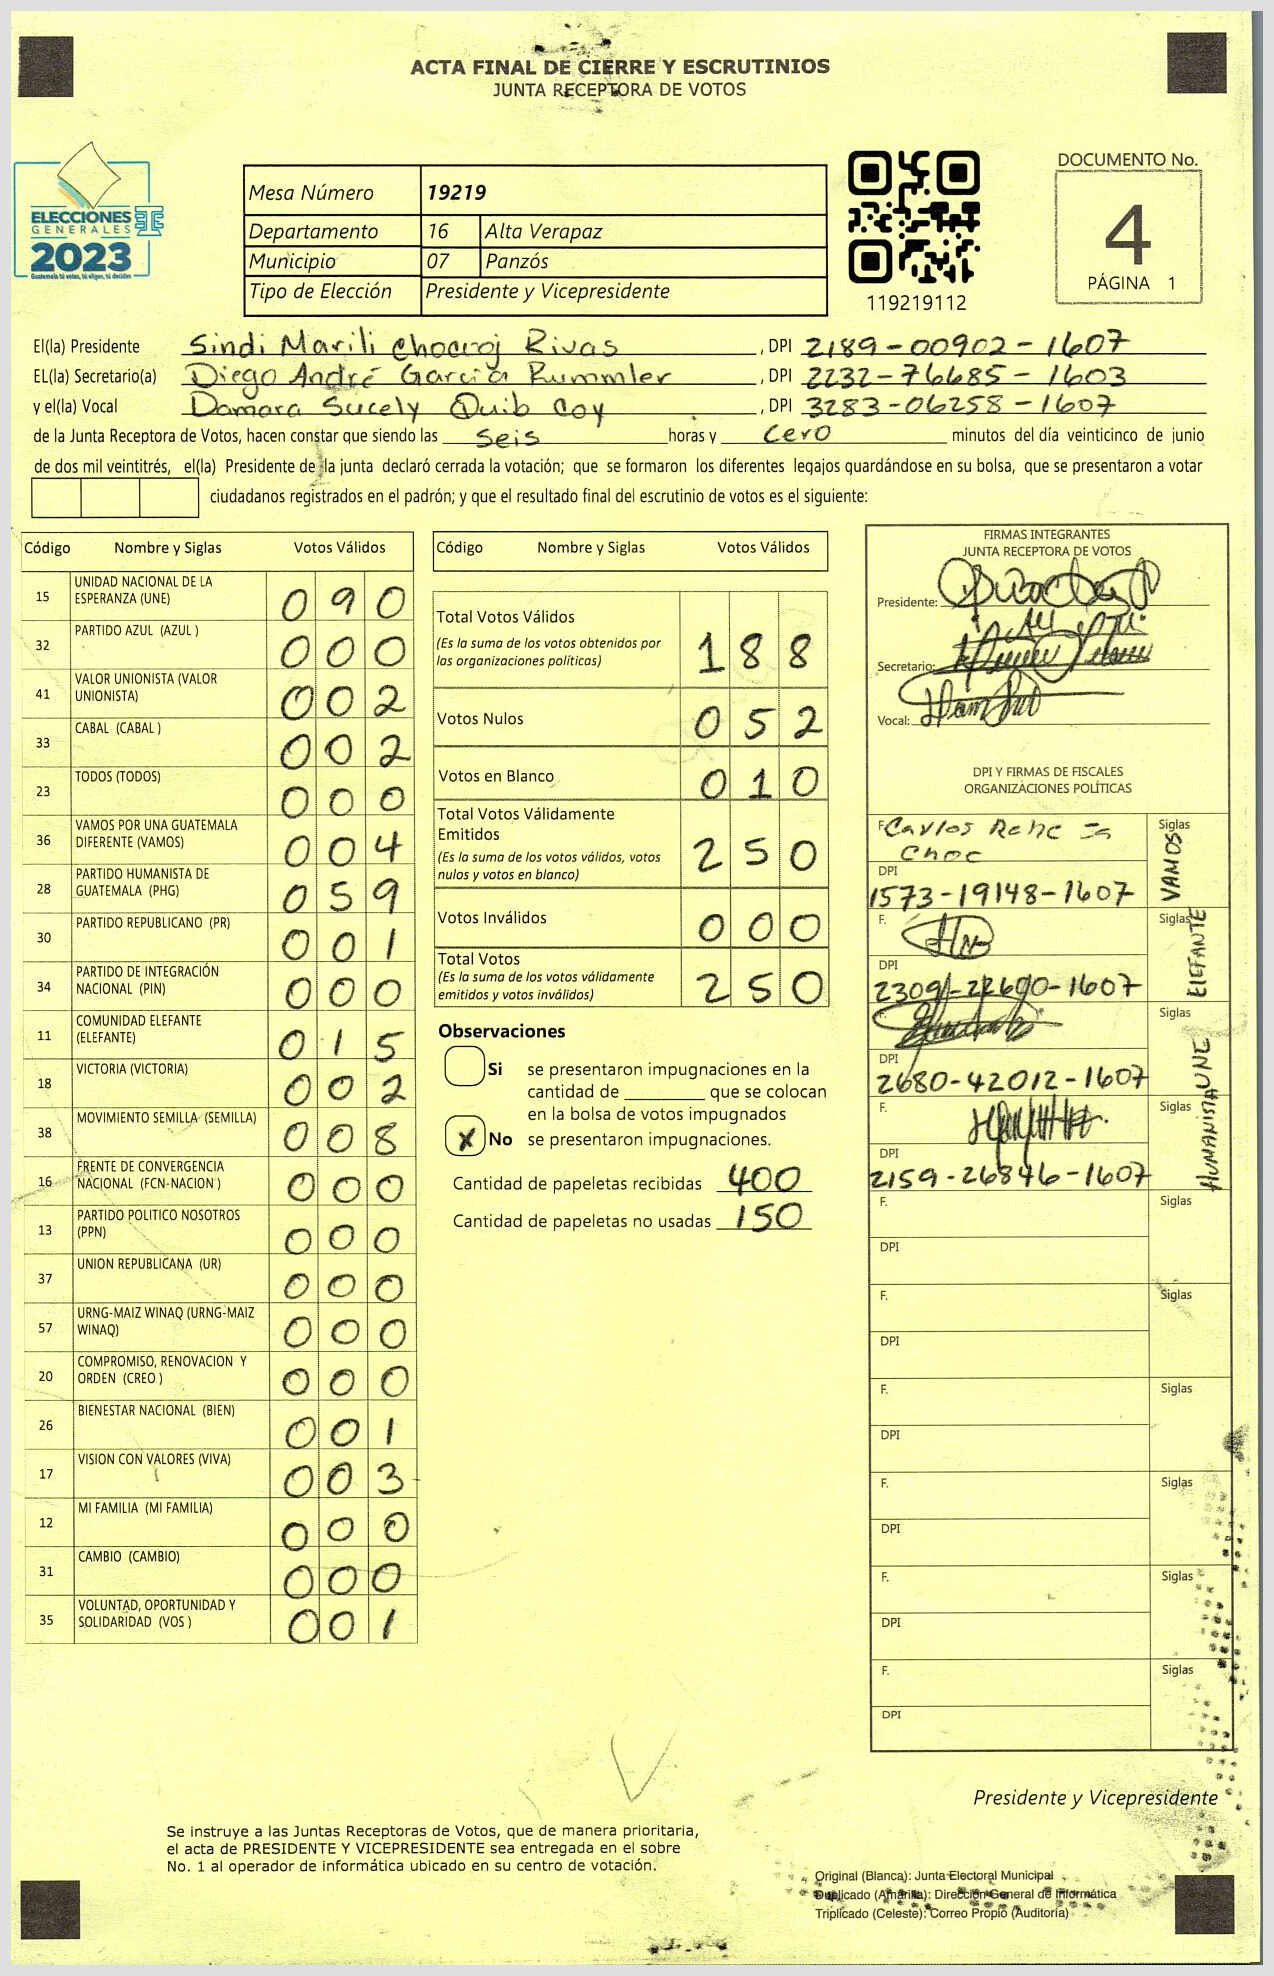 ACTA FINAL DE CIERRE Y ESCRUTINIOS
JUNTA RECEPTORA DE VOTOS
ELECCIONES
GENERALES
2023
Guatemala tú votas, tú eliges, tú decides
Mesa Número 19219
Departamento 16 Alta Verapaz
Municipio 07 Panzós
Tipo de Elección Presidente y Vicepresidente
119219112
DOCUMENTO No.
4
PÁGINA 1
El(la) Presidente Sindi Marili Chocooj Rivas, DPI 2189-00902-1607
EL(la) Secretario(a) Diego André García Rummler, DPI 2232-76685-1603
y el(la) Vocal Damara Sucely Quib Coy, DPI 3283-06258-1607
de la Junta Receptora de Votos, hacen constar que siendo las seis horas y cero minutos del día veinticinco de junio
de dos mil veintitrés, el(la) Presidente de la junta declaró cerrada la votación; que se formaron los diferentes legajos guardándose en su bolsa, que se presentaron a votar
ciudadanos registrados en el padrón; y que el resultado final del escrutinio de votos es el siguiente:
Código Nombre y Siglas Votos Válidos
15 UNIDAD NACIONAL DE LA ESPERANZA (UNE) 090
32 PARTIDO AZUL (AZUL ) 000
41 VALOR UNIONISTA (VALOR UNIONISTA) 002
33 CABAL (CABAL ) 002
23 TODOS (TODOS) 000
36 VAMOS POR UNA GUATEMALA DIFERENTE (VAMOS) 004
28 PARTIDO HUMANISTA DE GUATEMALA (PHG) 059
30 PARTIDO REPUBLICANO (PR) 001
34 PARTIDO DE INTEGRACIÓN NACIONAL (PIN) 000
11 COMUNIDAD ELEFANTE (ELEFANTE) 015
18 VICTORIA (VICTORIA) 002
38 MOVIMIENTO SEMILLA (SEMILLA) 008
16 FRENTE DE CONVERGENCIA NACIONAL (FCN-NACION ) 000
13 PARTIDO POLITICO NOSOTROS (PPN) 000
37 UNION REPUBLICANA (UR) 000
57 URNG-MAIZ WINAQ (URNG-MAIZ WINAQ) 000
20 COMPROMISO, RENOVACION Y ORDEN (CREO ) 000
26 BIENESTAR NACIONAL (BIEN) 001
17 VISION CON VALORES (VIVA) 003
12 MI FAMILIA (MI FAMILIA) 000
31 CAMBIO (CAMBIO) 000
35 VOLUNTAD, OPORTUNIDAD Y SOLIDARIDAD (VOS ) 001
Código Nombre y Siglas Votos Válidos
Total Votos Válidos 188
(Es la suma de los votos obtenidos por
las organizaciones políticas)
Votos Nulos 052
Votos en Blanco 010
Total Votos Válidamente
Emitidos 250
(Es la suma de los votos válidos, votos
nulos y votos en blanco)
Votos Inválidos 000
Total Votos 250
(Es la suma de los votos válidamente
emitidos y votos inválidos)
Observaciones
Si se presentaron impugnaciones en la
cantidad de ________ que se colocan
en la bolsa de votos impugnados
X No se presentaron impugnaciones.
Cantidad de papeletas recibidas 400
Cantidad de papeletas no usadas 150
FIRMAS INTEGRANTES
JUNTA RECEPTORA DE VOTOS
Presidente:
Secretario:
Vocal:
DPI Y FIRMAS DE FISCALES
ORGANIZACIONES POLÍTICAS
F. Carlos Choc Siglas VAMOS
DPI
1573-19148-1607
F. Siglas ElEFANTE
DPI
2309-22690-1607
F. Siglas UNE
DPI
2680-42012-1607
F. Siglas HUMANISTA
DPI
2159-26846-1607
F. Siglas
DPI
F. Siglas
DPI
F. Siglas
DPI
F. Siglas
DPI
F. Siglas
DPI
F. Siglas
DPI
Presidente y Vicepresidente
Se instruye a las Juntas Receptoras de Votos, que de manera prioritaria,
el acta de PRESIDENTE Y VICEPRESIDENTE sea entregada en el sobre
No. 1 al operador de informática ubicado en su centro de votación.
Original (Blanca): Junta Electoral Municipal
Duplicado (Amarilla): Dirección General de Informática
Triplicado (Celeste): Correo Propio (Auditoria)